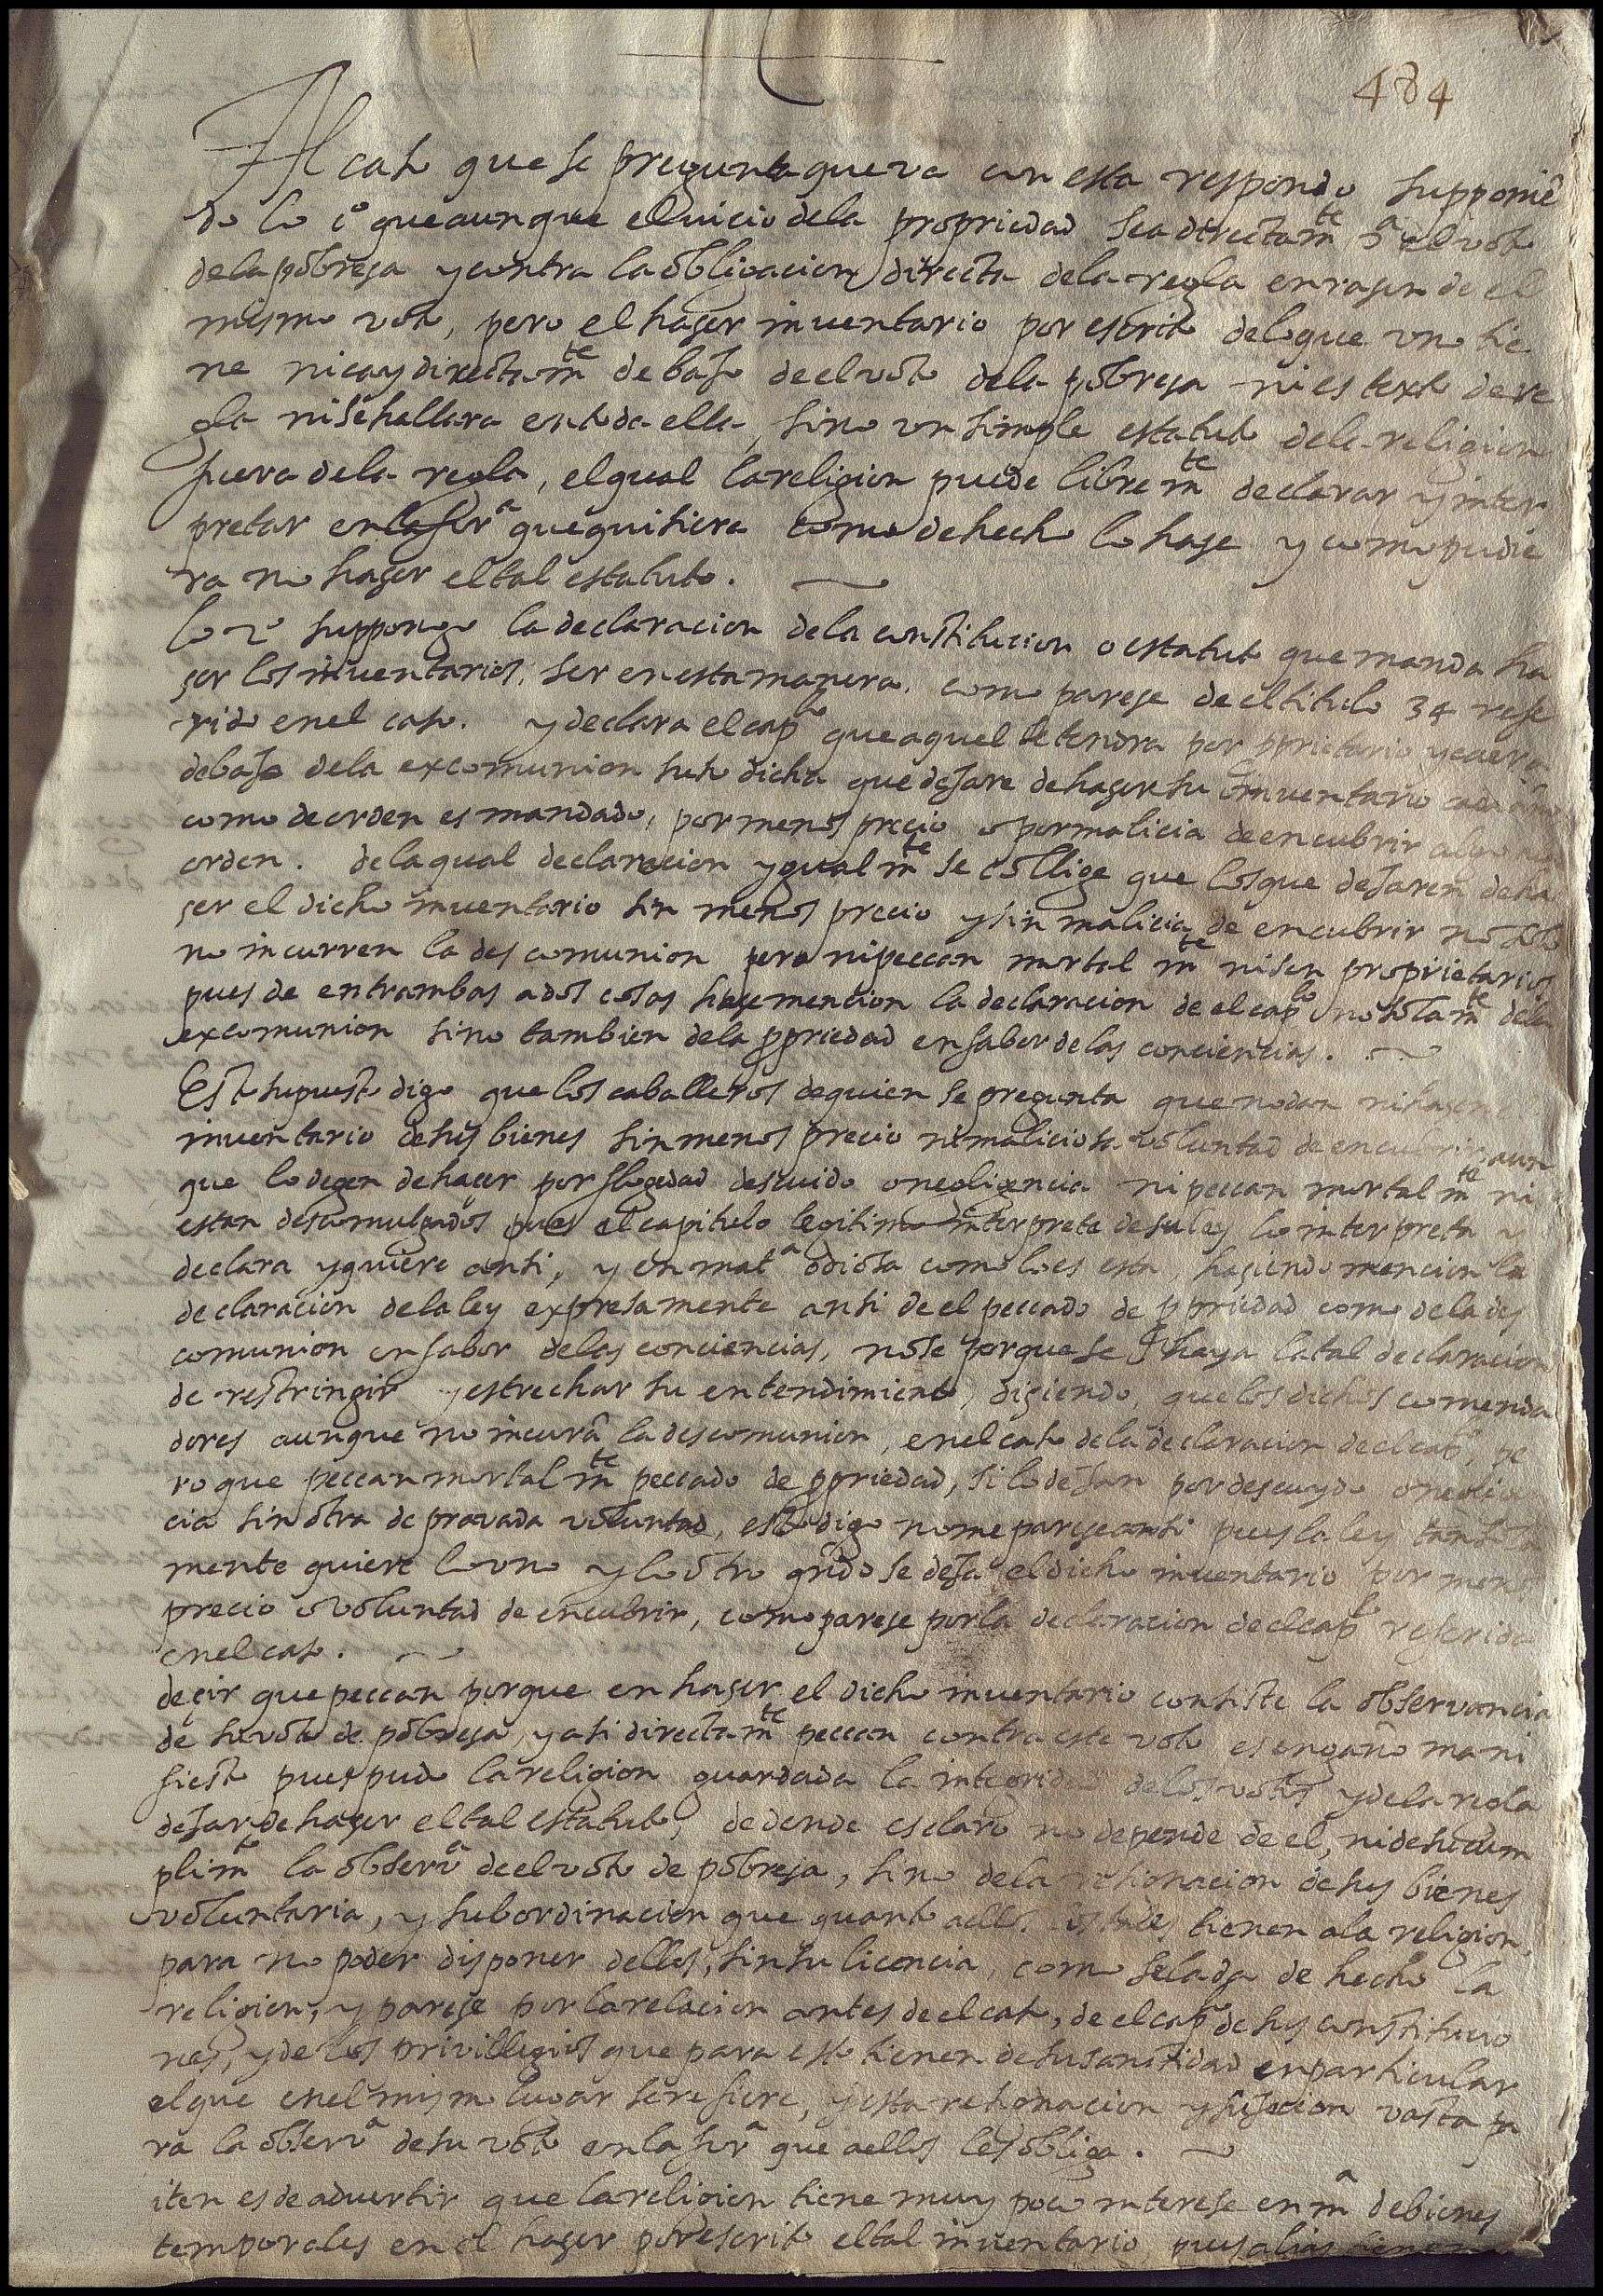 484
Al caso que se pregunta que va con esta respondo supponiẽ
do lo 1º que aunque el vicio dela propriedad sea directamte cª el voto
dela pobreza y contra la obligacion directa dela regla en razon de el
mismo voto, pero el hazer inventario por escrito delo que uno tie
ne ni cay directamte debaxo de el voto dela pobreza ni es texto de re
gla ni se hallara en toda ella, sino un simple estatuto dela religion
fuera dela regla, el qual la religion puede libremte declarar y inter
pretar en la forª que quisiere como de hecho lo haze y como pudie
ra no hazer el tal estatuto.
Lo 2º suppongo la declaracion dela constitucion o estatuto que manda ha
zer los inventarios, ser en esta manera, como pareze de el titulo 34 refe
rido en el caso. y declara el caplo que aquel se tendra por pprietario y caera
debaxo dela excomunion suso dicha que dejare de hazer su inventario cada año
como de orden es mandado, por menos precio o por malicia de encubrir algo
orden. dela qual declaracion ygualmte se collige que los que dejaren de ha
zer el dicho inventario sin menos precio y sin malicia de encubrir no solo
no incurren la descomunion pero ni peccan mortalmte ni son proprietarios
pues de entrambas a dos cosas haze mencion la declaracion de el caplo no solamte dela
excomunion sino tambien dela ppriedad en fabor delas conciencias.
Esto supuesto digo que los caballeros de quien se pregunta que no dan ni hazen
inventario de sus bienes sin menos precio ni maliciosa voluntad de encubrir aun
que lo dexen de hazer por flogedad descuido o negligencia ni peccan mortalmte ni
estan descomulgados pues el capitulo legitimo interprete de su ley lo interpreta y
declara y quiere ansi, y en matª odiosa como lo es esta, haziendo mencion la
declaracion dela ley expresamente ansi de el peccado de ppriedad como dela des
comunion en fabor delas conciencias, no se porque se haya la tal declaracion
de restringir y estrechar su entendimiento, diziendo, que los dichos comenda
dores aunque no incurrã la descomunion, en el caso dela declaracion de el caplo, pe
ro que peccan mortalmte peccado de ppriedad, si lo dejan por descuydo o neglig
cia sin otra depravada voluntad, esto digo no me pareze ansi pues la ley tan sola
mente quiere lo uno y lo otro qndo se deja el dicho inventario por menos
precio o voluntad de encubrir, como pareze por la declaracion de el caplo referida
en el caso.
dezir que peccan porque en hazer el dicho inventario consiste la observancia
de su voto de pobreza, y asi directamte peccan contra este voto es engaño mani
fiesto pues pudo la religion guardada la integridad delos votos y dela regla
dejar de hazer el tal estatuto, de donde es claro no depende de el, ni de su cum
plimto la observª de el voto de pobreza, sino dela resignacion de sus bienes
voluntaria, y subordinacion que quanto a ellos los tales tienen a la religion,
para no poder disponer dellos, sin su licencia, como se la da de hecho la
religion, y pareze por la relacion antes de el caso, de el caplo de sus constitucio
nes, y de los privillegios que para esto tienen de su sanctidad en particular
el que en el mismo lugar se refiere, y esta resignacion y sujecion vasta pa
ra la observª de su voto en la forª que a ellos les obliga.
iten es de advertir que la religion tiene muy poco interese en mª de bienes
temporales en el hazer por escrito el tal inventario pues alias tiene